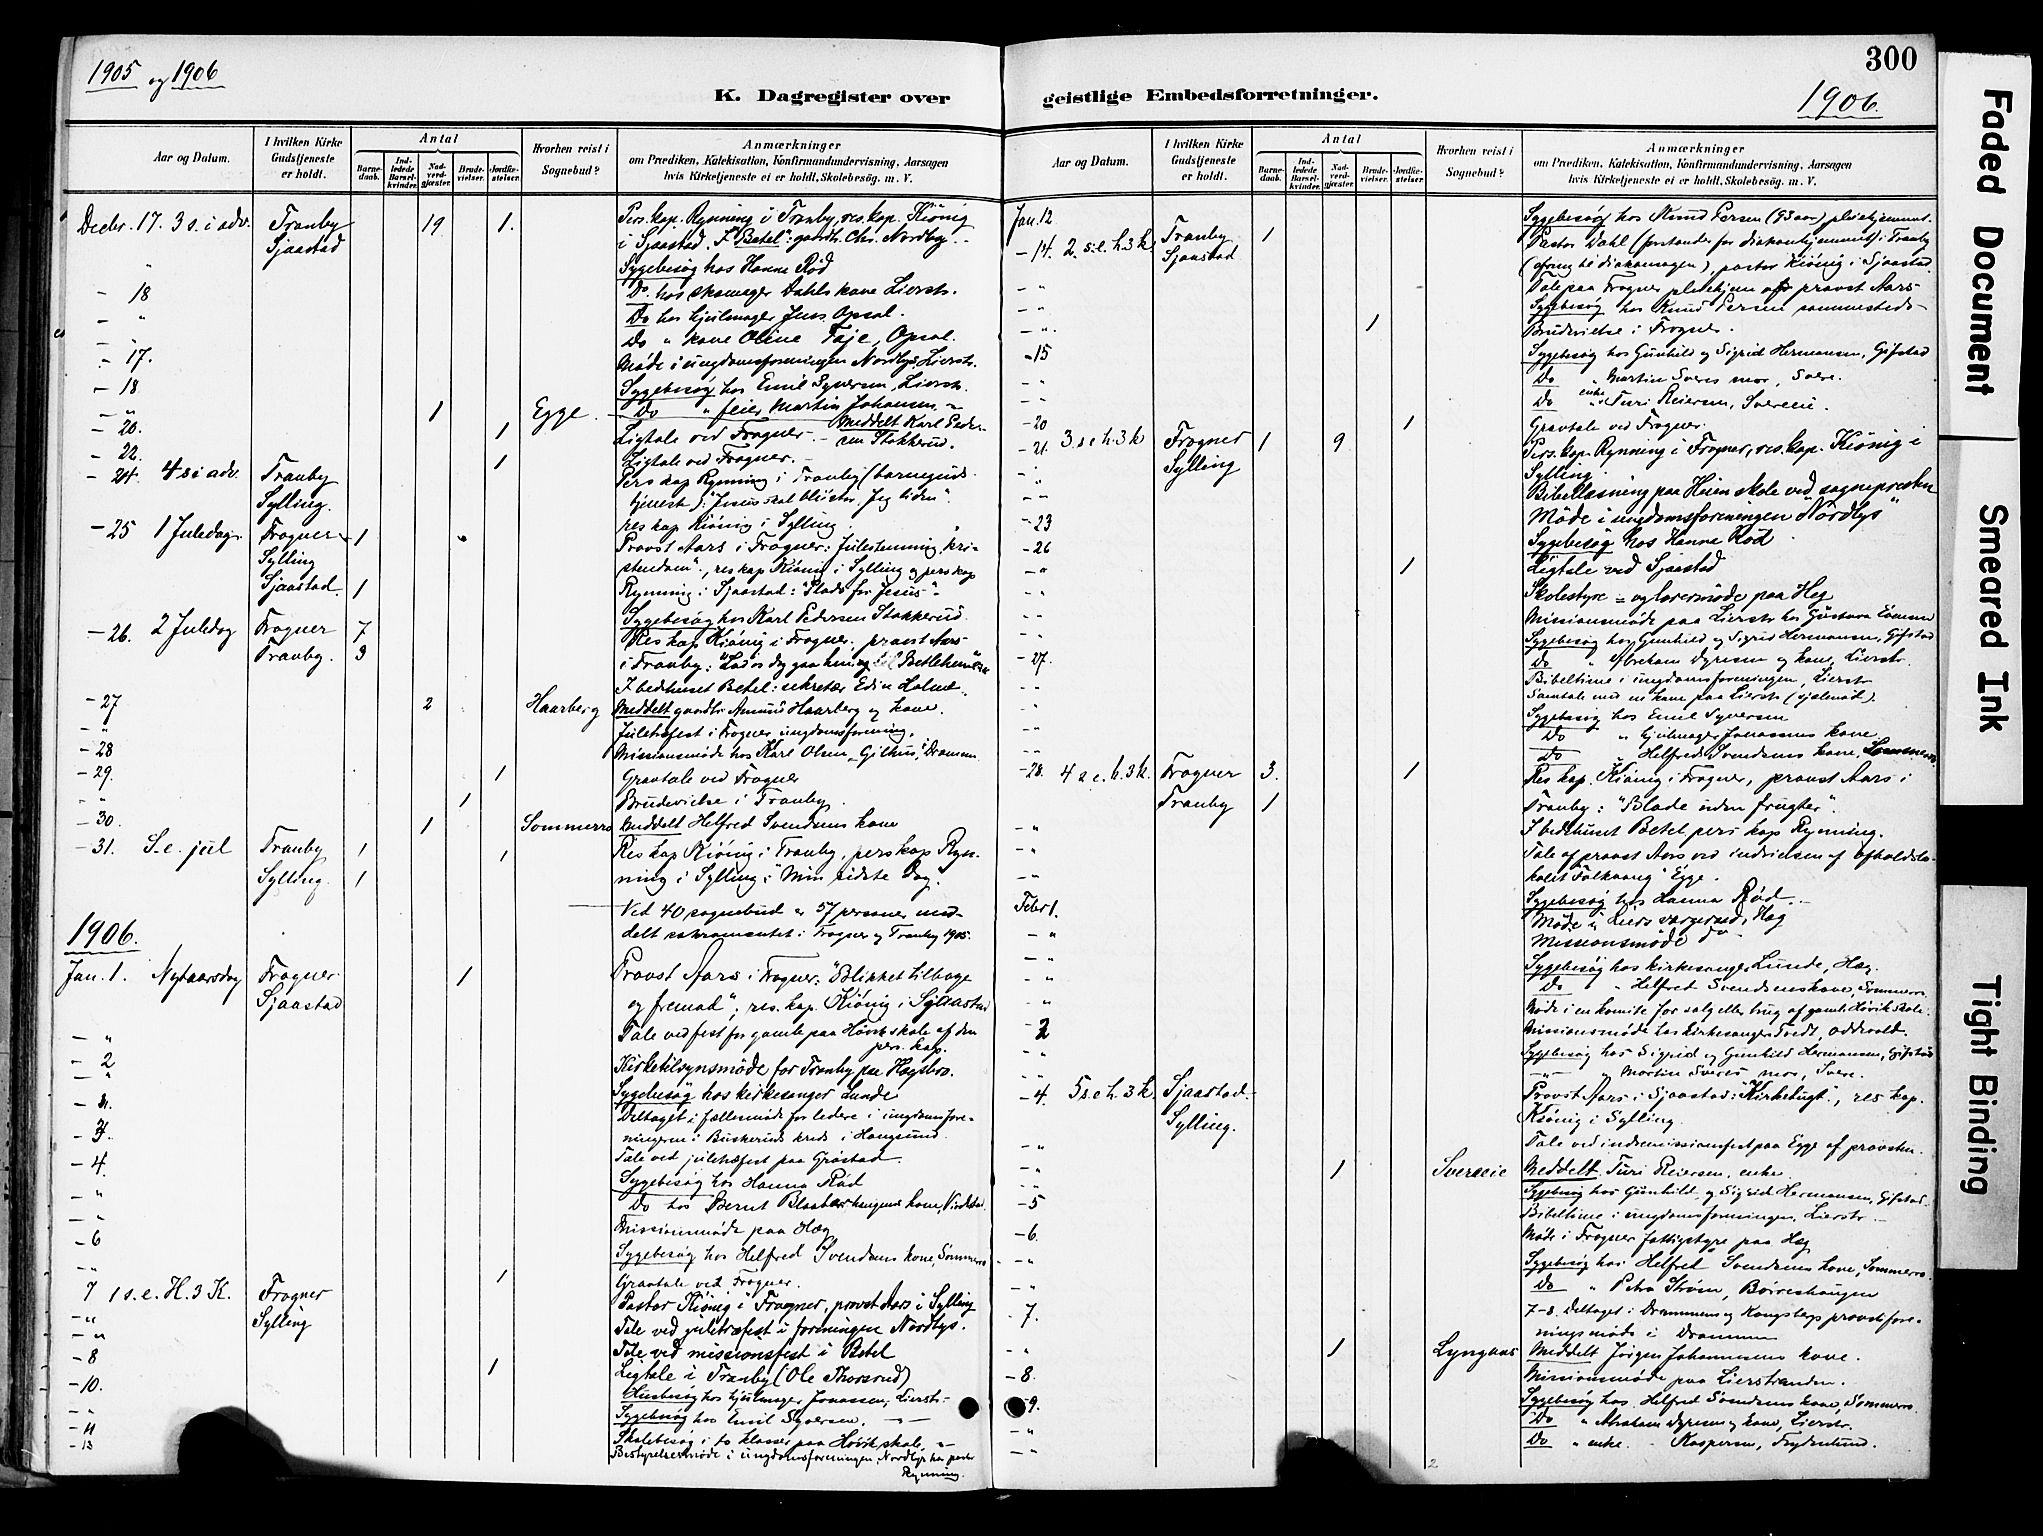 1905 og 1906
K. Dagregister over
Aar og Datum.
I hvilken Kirke Gudstjeneste er holdt.
Antal
Barne-daab.
Ind-ledede Barsel-kvinder.
Nad-verd-gjæster.
Brude-vielser.
Jordfæ-stelser.
Hvorhen reist i Sognebud?
Anmærkninger
om Prædiken, Katekisation, Konfirmandundervisning, Aarsagen
hvis Kirketjeneste ei er holdt, Skolebesög. m. V.
Decbr. 17. 3 s. i adv. Tranby 19 1. Pers. kap. Rynning i Tranby, res. kap. Kiönig
Sjaastad i Sjaastad. I "Betel": gaardbr. Chr. Nordby.
" Sygebesög hos Hanne Röd
- 18 Do. hos skomager Dahls kone Lierstr.
- " Do hos hjulmager Jens Opsal.
- " Do " kone Oline Faje, Opsal.
- 17. Möde i ungdomsforeningen Nordlys Lierstr.
- 18 Sygebesög hos Emil Syversen, Lierstr.
- " 1 Egge. Do " feier Martin Johansen
- 20. 1 Ligtale ved Frogner. - Meddelt Karl Peder-sen Stokkerud.
- 22. 1 Ligtale ved Frogner.
- 24. 4 s i adv. Tranby Pers kap Rynning i Tranby (barneguds-
Sylling. tjeneste):
res kap Kiönig i Sylling.
- 25 1 Juledag Frogner 1 Provst Aars i Frogner: Julestemning, kri-
Sylling stendom"., res kap Kiönig i Sylling og pers kap
Sjaastad. 1 Rynning i Sjaastad: "Plads for Jesus"
Sygebesög hos Karl Pedersen Stokkerud.
- 26. 2 Juledag Frogner 7 Res kap Kiönig i Frogner. provst Aars
Tranby. 3 i Tranby:
I bedhuset Betel: sekretær Edin Holme.
- 27 2 Haarberg Meddelt gaardbr Amund Haarberg og kone.
- " Juletrefest i Frogner ungdomsforening.
- 28 Missionsmöde hos Karl Olsen, Gilhus, Drammen
- 29. 1 Gravtale ved Frogner
- " 1 Brudevielse i Tranby
- 30. 1 Sommerro Meddelt Helfred Svendsens kone
- 31. S. e. jul Tranby 1 1 Res kap Kiönig i Tranby, pers kap Ryn-
Sylling. 1 ning i Sylling: "Min sidste Dag".
Ved 40 sognebud er 57 personer med-
1906. delt sakramentet i Frogner og Tranby 1905.
Jan. 1. Nytaarsdag Frogner 1 Provst Aars i Frogner: "Blikket tilbage
Sjaastad og fremad", res. kap. Kiönig i Sjaastad
- " Tale ved fest for gamle paa Hövik skole af den pers. kap.
- 2 Kirketilsynsmöde for Tranby paa Hegsbro.
- " Sygebesög hos kirkesanger Lunde
Deltaget i fællesmöde for ledere i ungdomsfore-
- 3. ningerne i Buskeruds kreds i Haugsund.
- 4. Tale ved juletræfest paa Gröstad.
- " Sygebesög hos Hanna Röd
- " Do hos Bernt Blaabærhaugens kone,
- 6 Missionsmöde paa Hæg
- " Sygebesög hos Helfred Svendsens kone, Sommerro
1 Gravtale ved Frogner.
7 1 s. e. H. 3 K. Frogner Pastor Kiönig i Frogner, provst Aars i Sylling
- " Sylling Tale ved juletræfest i foreningen Nordlys.
- " Tale ved missionsfest i Betel
- 8 1 Ligtale i Tranby (Ole Thorsrud)
- 10. Husbesög hos hjulmager Jonassen, Lierstr.
- " Sygebesög hos Emil Syversen,
- 11 Skolebesög i to klasser paa Hövik skole,
- 13 Bestyrelsesmöde i ungdomsforeningen Nordlys hos pastor Rynning.
300
geistlige Embedsforretninger.
1906.
Aar og Datum.
I hvilken Kirke Gudstjeneste er holdt.
Antal
Barne-daab.
Ind-ledede Barsel-kvinder.
Nad-verd-gjæster.
Brude-vielser.
Jordfæ-stelser.
Hvorhen reist i Sognebud?
Anmærkninger
om Prædiken, Katekisation, Konfirmandundervisning, Aarsagen
hvis Kirketjeneste ei er holdt, Skolebesög. m. V.
Jan. 12 Sygebesög hos Knud Persen (93 aar) pleiehjemmet.
- 14. 2. s. e. h. 3 k. Tranby 1 Pastor Dahl (forstander for diakonhjemmet) i Tranby
Sjaastad (ofring til diakonsagen), pastor Kiönig i Sjaastad.
- " Tale paa Frogner pleiehjem af provst Aars
- " Sygebesög hos Knud Persen sammesteds
- " 1 Brudevielse i Frogner.
- 15 Sygebesög hos Gunhild og Sigrid Hermansen, Gifstad
- " Do " Martin Sveres mor, Svere.
- " Do " enke Turi Reiersen, Svereeie.
- 20 1 Gravtale ved Frogner.
- 21. 3 s e h. 3 k Frogner 1 9 Pers. kap. Rynning i Frogner, res. kap. Kiönig i
" Sylling Sylling
- " Bibellæsning paa Heien skole ved sognepresten
- 23 Möde i ungdomsforeningen "Nordlys"
- 26 Sygebesög hos Hanne Röd
- " 1 Ligtale ved Sjaastad
- " Skolestyre- og lærermöde paa Heg
- " Missionsmöde paa Lierstr hos Gustava
- " Sygebesög hos Gunhild og Sigrid Hermansen, Gifstad
- 27. Do " Abraham Dyresen og kone, Lierstr.
- " Bibeltime i ungdomsforeningen, Lierstr
- " Samtale med en kone paa Lierstr (sjælenöd).
- " Sygebesög hos Emil Syversen
- " Do " hjulmager Jonassens kone
- " Do " Helfred Svendsens kone, Sommerro
- 28. 4 s e. h. 3 k. Frogner 3. 1 Res kap. Kiönig i Frogner, provst Aars i
Tranby 1 Tranby: "Blade uden frugter".
- " I bedhuset Betel pers kap Rynning.
- " Tale af provst Aars ved indvielsen af afholdslo-
- " kalet Folkvang" Egge.
Febr 1. Sygebesög hos Hanna Röd.
- " Möde i Liers værgeraad, Hæg
Missionsmöde do
- " Sygebesög hos kirkesanger Lunde, Hæg.
- " Do " Helfred Svendsens kone, Sommerro
- " Möde i en komite for salg eller brug af gamle Hövik skole.
- 2 Missionsmöde hos kirkesanger Tvedt, Oddevold.
- " Sygebesög hos Sigrid og Gunhild Hermansen, Gifstad
- " - " - " Martin Sveres mor, Svere.
- 4. 5 s. e h. 3 k. Sjaastad. Provst Aars i Sjaastad: "Kirketugt"., res kap.
Sylling. Kiönig i Sylling.
- " Tale ved indremissionsfest paa Egge af provsten.
- " 1 Svereeie Meddelt Turi Reiersen, enke
- " Sygebesög hos Gunhild og Sigrid Hermansen, Gifstad.
- 5 Bibeltime i ungdomsforeningen, Lierstr -
- 6. Möde i Frogner fattigstyre paa Hæg
- " Sygebesög hos Helfred Svendsens kone, Sommerro.
- " Do " Petra Ström, Börreshaugen
- 7. 7-8. Deltaget i Drammens og Kongsbergs provstifore-
ningsmöde i Drammen
- " 1 Lyngaas Meddelt Jörgen Johannesens kone.
- 8. Missionsmöde paa Lierstranden.
- 9. Sygebesög hos Helfred Svendsens kone, Sommerro.
- " Do " Abraham Dyresen og kone, Lierstr.
- " Do " enke Kaspersen, Frydenlund.
2
Faded Document
Smeared Ink
Tight Binding